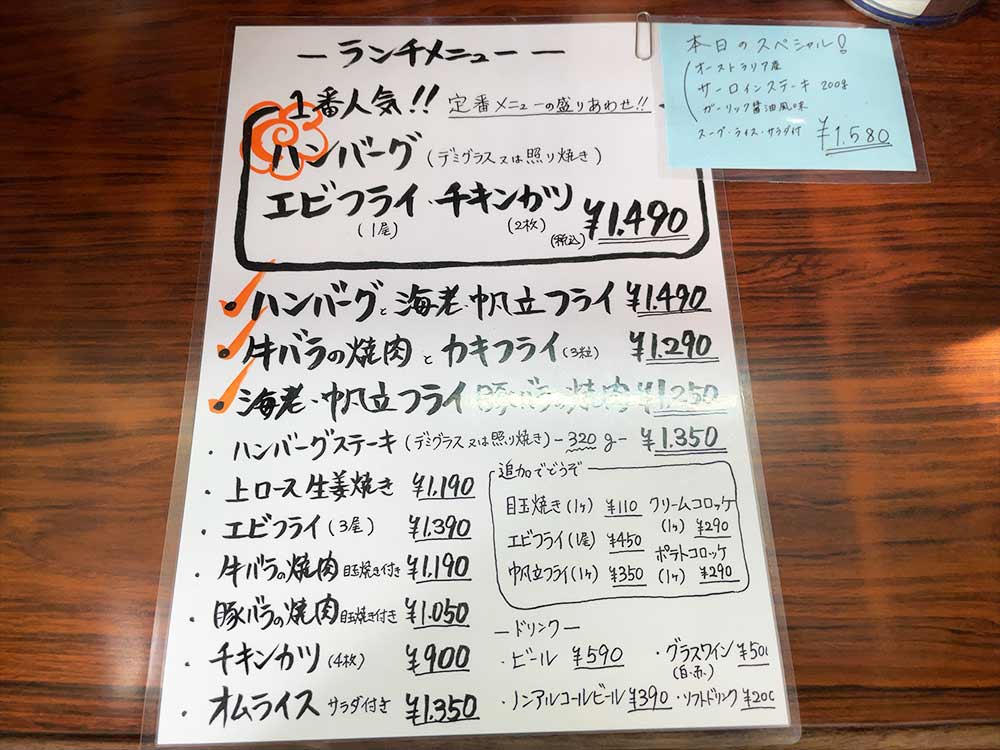 ーランチメニューー
1番人気!! 定番メニューの盛りあわせ!!
ハンバーグ(デミグラス又は照り焼き)
エビフライ・チキンカツ ¥1.490
(1尾) (2枚) (税込)
・ハンバーグと海老・帆立フライ ¥1.490
・牛バラの焼肉とカキフライ(3粒) ¥1.290
・海老・帆立フライ 豚バラの焼肉 ¥1.250
・ハンバーグステーキ(デミグラス又は照り焼き)-320g- ¥1.350
・上ロース生姜焼き ¥1.190
・エビフライ(3尾) ¥1.390
・牛バラの焼肉目玉焼き付き ¥1.190
・豚バラの焼肉目玉焼き付き ¥1.050
・チキンカツ(4枚) ¥900
・オムライス サラダ付き ¥1.350
追加でどうぞ
目玉焼き(1ヶ) ¥110
エビフライ(1尾) ¥450
帆立フライ(1ヶ) ¥350
クリームコロッケ
(1ヶ) ¥290
ポテトコロッケ
(1ヶ) ¥290
ードリンクー
・ビール ¥590
・グラスワイン ¥500
(白.赤.)
・ノンアルコールビール ¥390
・ソフトドリンク ¥200
本日のスペシャル!
オーストラリア産
サーロインステーキ 200g
ガーリック醤油風味
スープ・ライス・サラダ付 ¥1.580